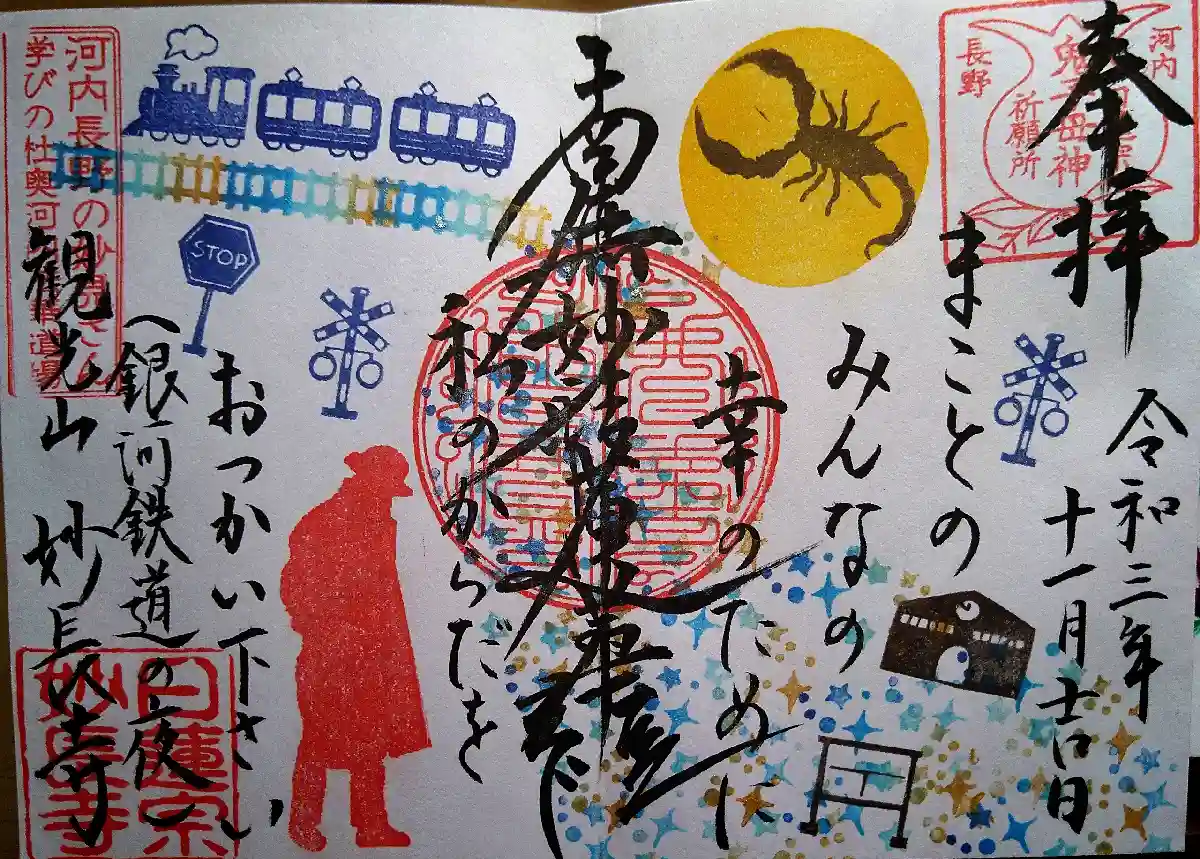 奉拝
令和三年
十一月吉日
まことの
みんなの
幸のために
南無妙法蓮華経
私のからだを
おつかい下さい
〈銀河鉄道の夜〉
観光山 妙長寺
河内
長野
鬼子母神
祈願所
STOP
河内長野の妙見さん
学びの杜奥河
道場
日蓮宗
妙長寺